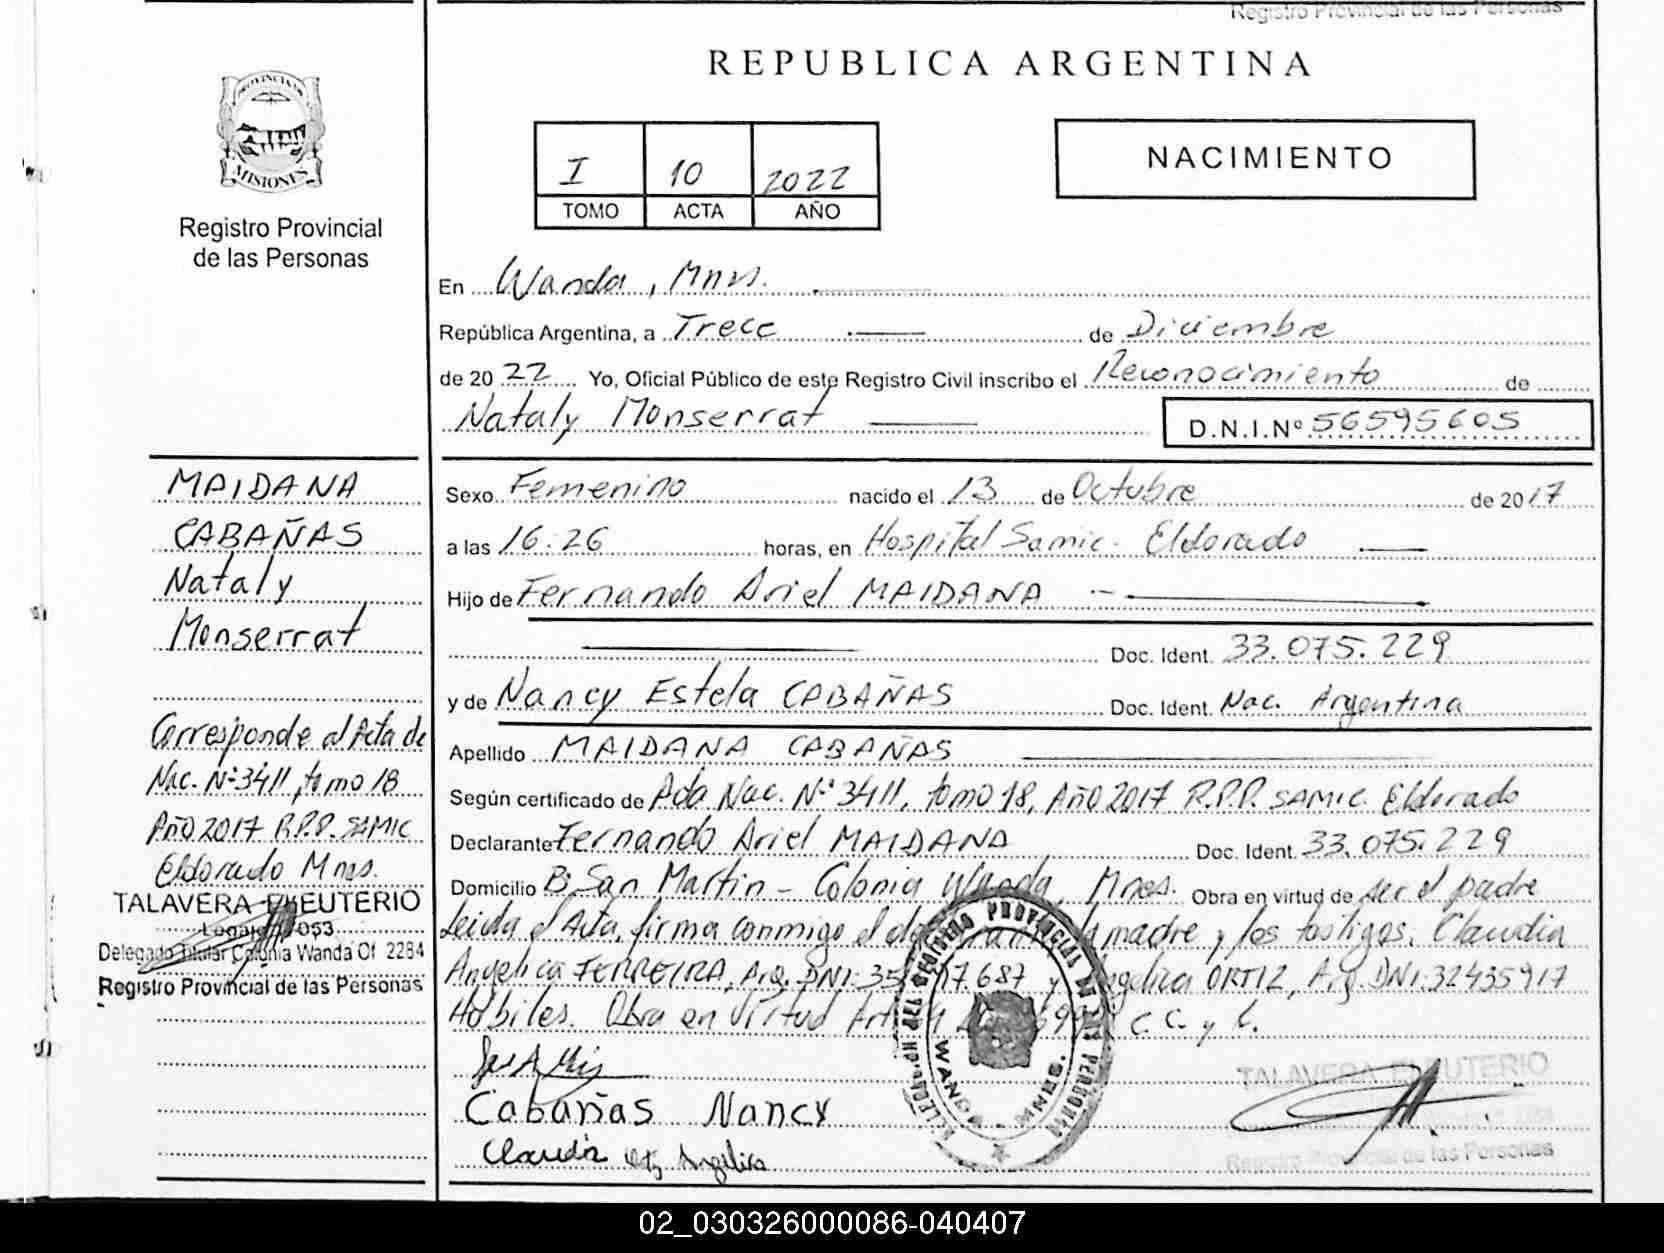 Registro Provincial de las Personas
REPUBLICA ARGENTINA
PROVINCIA DE
MISIONES
Registro Provincial
de las Personas
I 10 2022
TOMO ACTA AÑO
NACIMIENTO
En Wanda, Mnes.
República Argentina, a Trece de Diciembre
de 20 22 Yo, Oficial Público de este Registro Civil inscribo el Reconocimiento de
Nataly Monserrat D.N.I.Nº 56595605
MAIDANA
CABAÑAS
Nataly
Monserrat
Corresponde al Acta de
Nac. Nº 3411, tomo 18
Año 2017 R.P.P. SAMIC
Eldorado Mnes.
TALAVERA ELEUTERIO
Delegado Titular Colonia Wanda Of 2284
Registro Provincial de las Personas
Sexo Femenino nacido el 13 de Octubre de 2017
a las 16:26 horas, en Hospital Samic - Eldorado
Hijo de Fernando Ariel MAIDANA
Doc. Ident. 33.075.229
y de Nancy Estela CABAÑAS Doc. Ident. Nac. Argentina
Apellido MAIDANA CABAÑAS
Según certificado de Acta Nac. Nº 3411, tomo 18, Año 2017 R.P.P. SAMIC Eldorado
Declarante Fernando Ariel MAIDANA Doc. Ident. 33.075.229
Domicilio Bº San Martin - Colonia Wanda, Mnes. Obra en virtud de ser el padre
Leida el Acta, firma conmigo el madre y los testigos, Claudia
Angelica FERREIRA, Arg. DNI: 687 y Angelica ORTIZ, Arg. DNI: 32435917
Habiles. Obra en Virtud Art C.C. y C.
Cabañas Nancy
Claudia Angelica
REGISTRO PROVINCIAL DE LAS PERSONAS
WANDA - MNES.
TALAVERA ELEUTERIO
Registro Provincial de las Personas
02_030326000086-040407